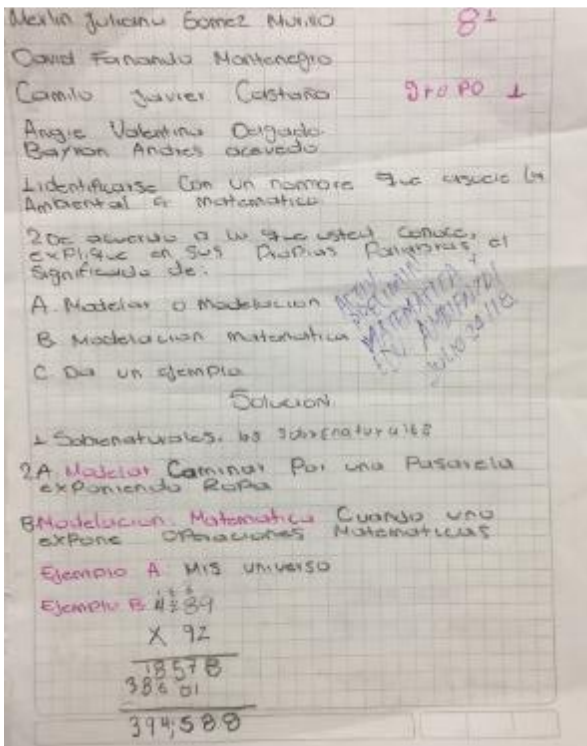 Merlin Juliana Gomez Murillo 8-1
David Fernando Montenegro
Camilo Javier Castaño Grupo 1
Angie Valentina Delgado
Bayron Andres acevedo
1.identificarse Con un nombre que asocie lo
Ambiental a matematica
2De acuerdo a lo que usted conoce,
explique en sus Propias Palabras, el
Significado de:
A. Modelar o modelación
B. Modelacion matematica
MATEMATICA Y
EDU. AMBIENTAL
JULIO
C. Da un ejemplo
Solucion
1 Sobrenaturales. los sobrenaturales
2A. Modelar Caminar Por una Pasarela
exponiendo Ropa
B.Modelacion Matematica Cuando uno
expone Operaciones Matematicas
Ejemplo A Mis universo
Ejemplo B 4289
X 92
18578
386 01
394,588